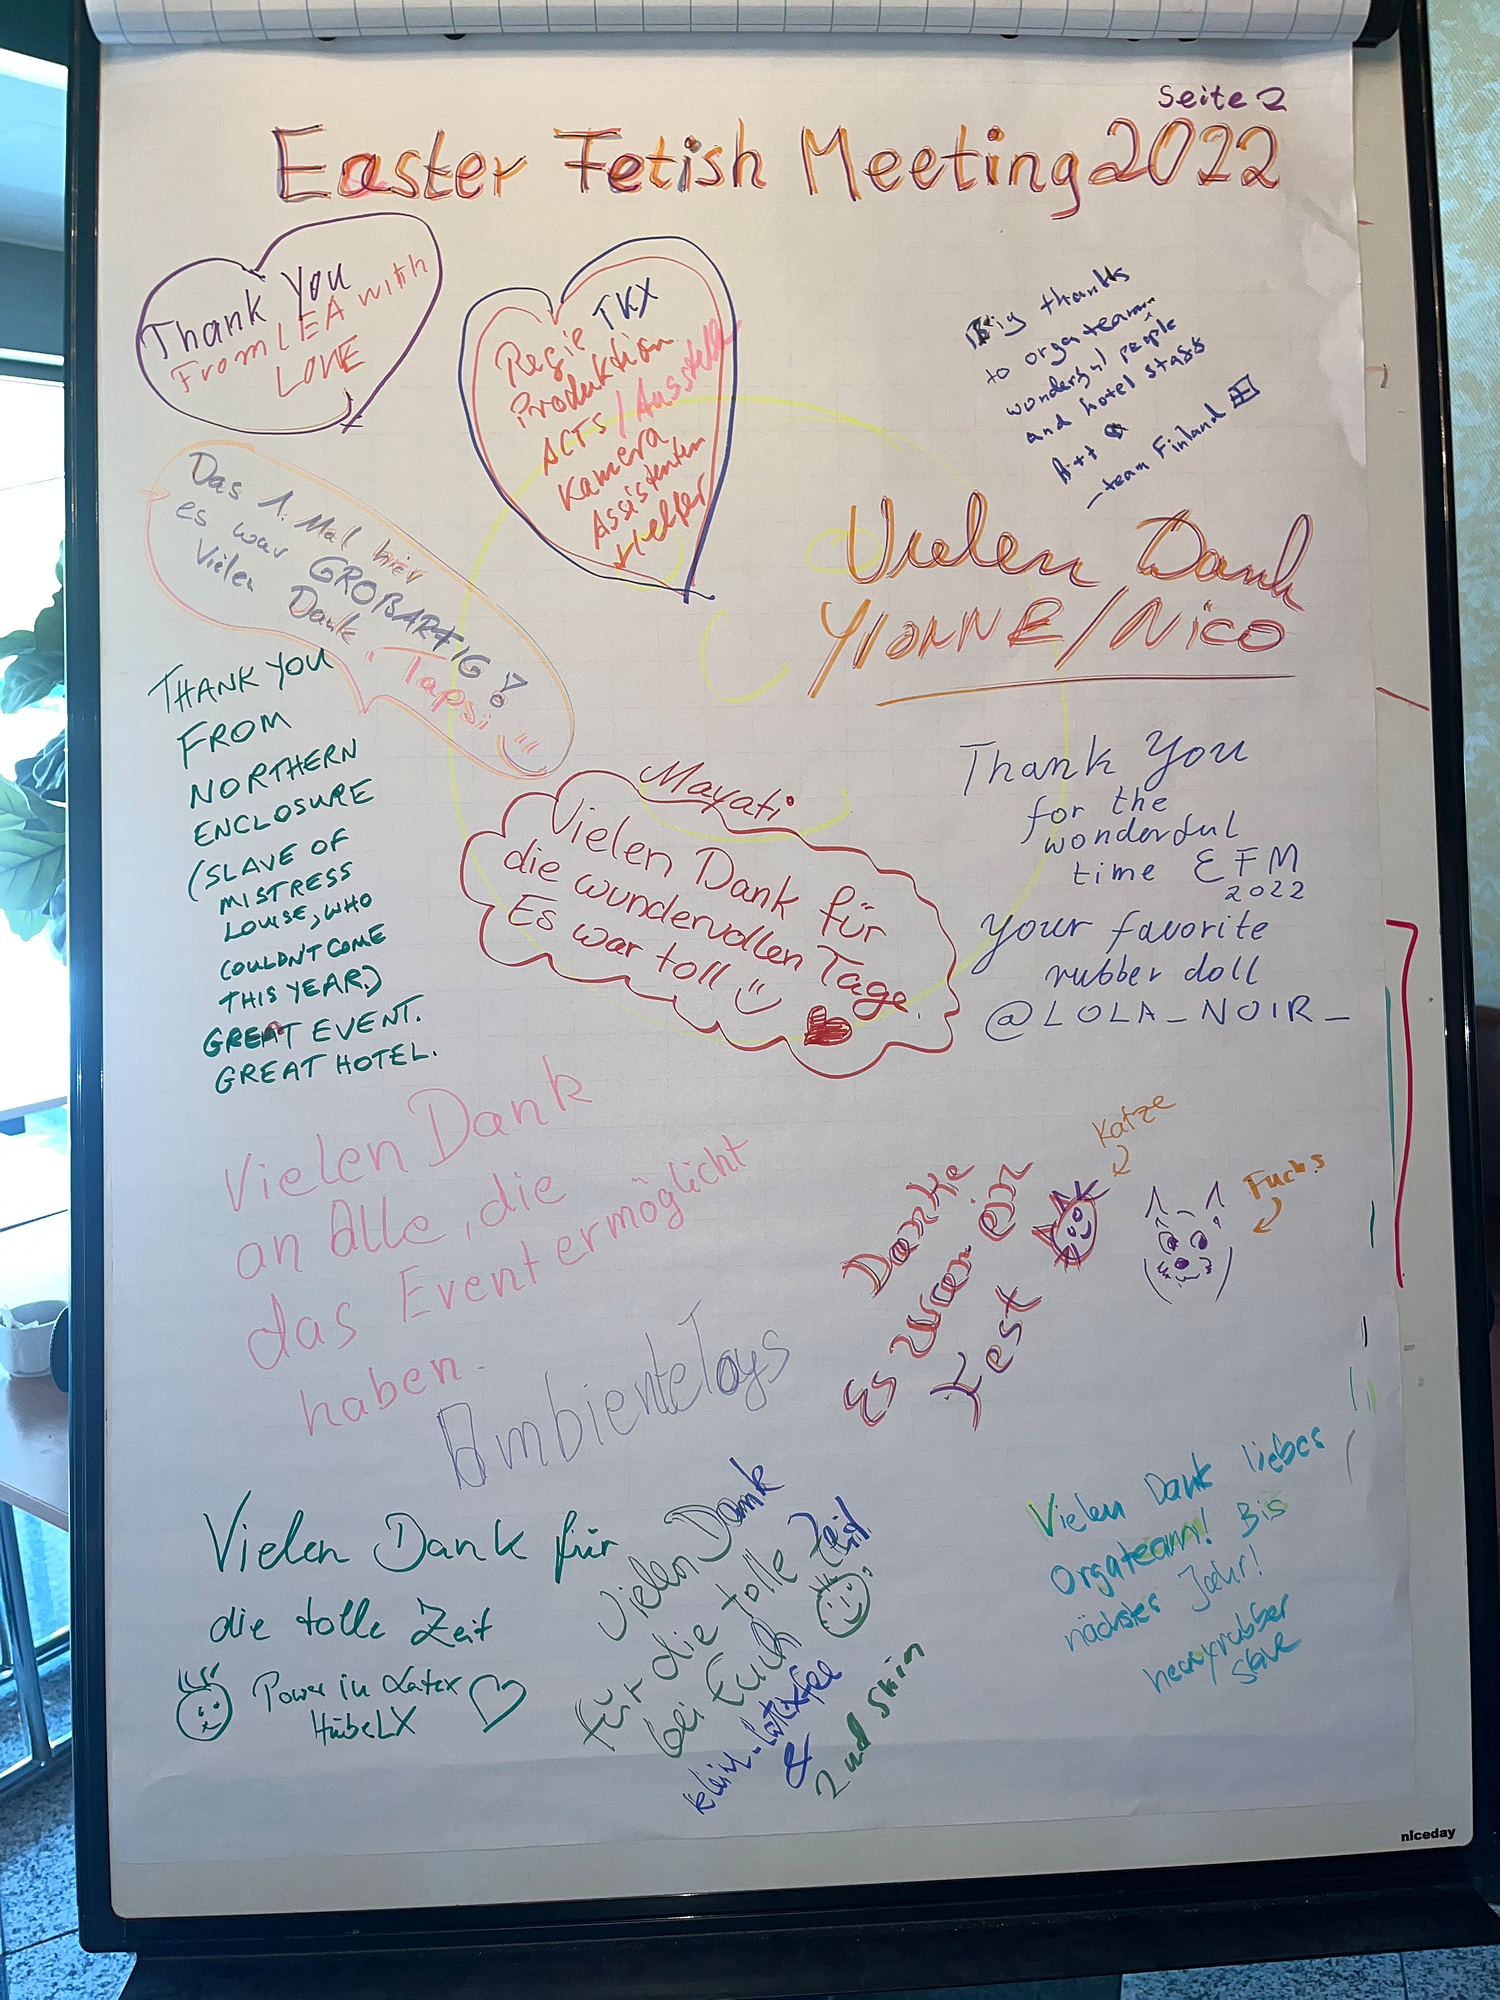 Seite 2
Easter Fetish Meeting 2022
Thank You
From LEA with
LOVE
TKX
Regie
Produktion
ACTS / Aussteller
Kamera
Assistenten
Helfer
Big thanks
to orgateam
wonderful people
and hotel staff
- team Finland
Das 1. Mal hier
es war GROßARTIG!
Vielen Dank
Tapsi
Vielen Dank
YVONNE/Nico
THANK YOU
FROM
NORTHERN
ENCLOSURE
(SLAVE OF
MISTRESS
LOUISE, WHO
COULDN'T COME
THIS YEAR.)
GREAT EVENT.
GREAT HOTEL.
Mayati
Vielen Dank für
die wundervollen Tage.
Es war toll
Thank You
for the
wonderful
time EFM
2022
your favorite
rubber doll
@LOLA_NOIR_
Vielen Dank
an Alle, die
das Event ermöglicht
haben.
AmbienteToys
Katze
Fuchs
Danke
Es war ein
Fest
Vielen Dank für
die tolle Zeit
Power in Latex
Vielen Dank
für die tolle Zeit
bei Euch
&
2nd Skin
Vielen Dank liebes
Orgateam! Bis
nächstes Jahr!
heavyrubber
slave
niceday